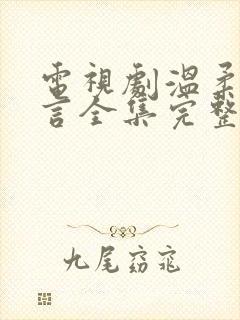 電視劇溫柔
言全集完整
九尾窈窕